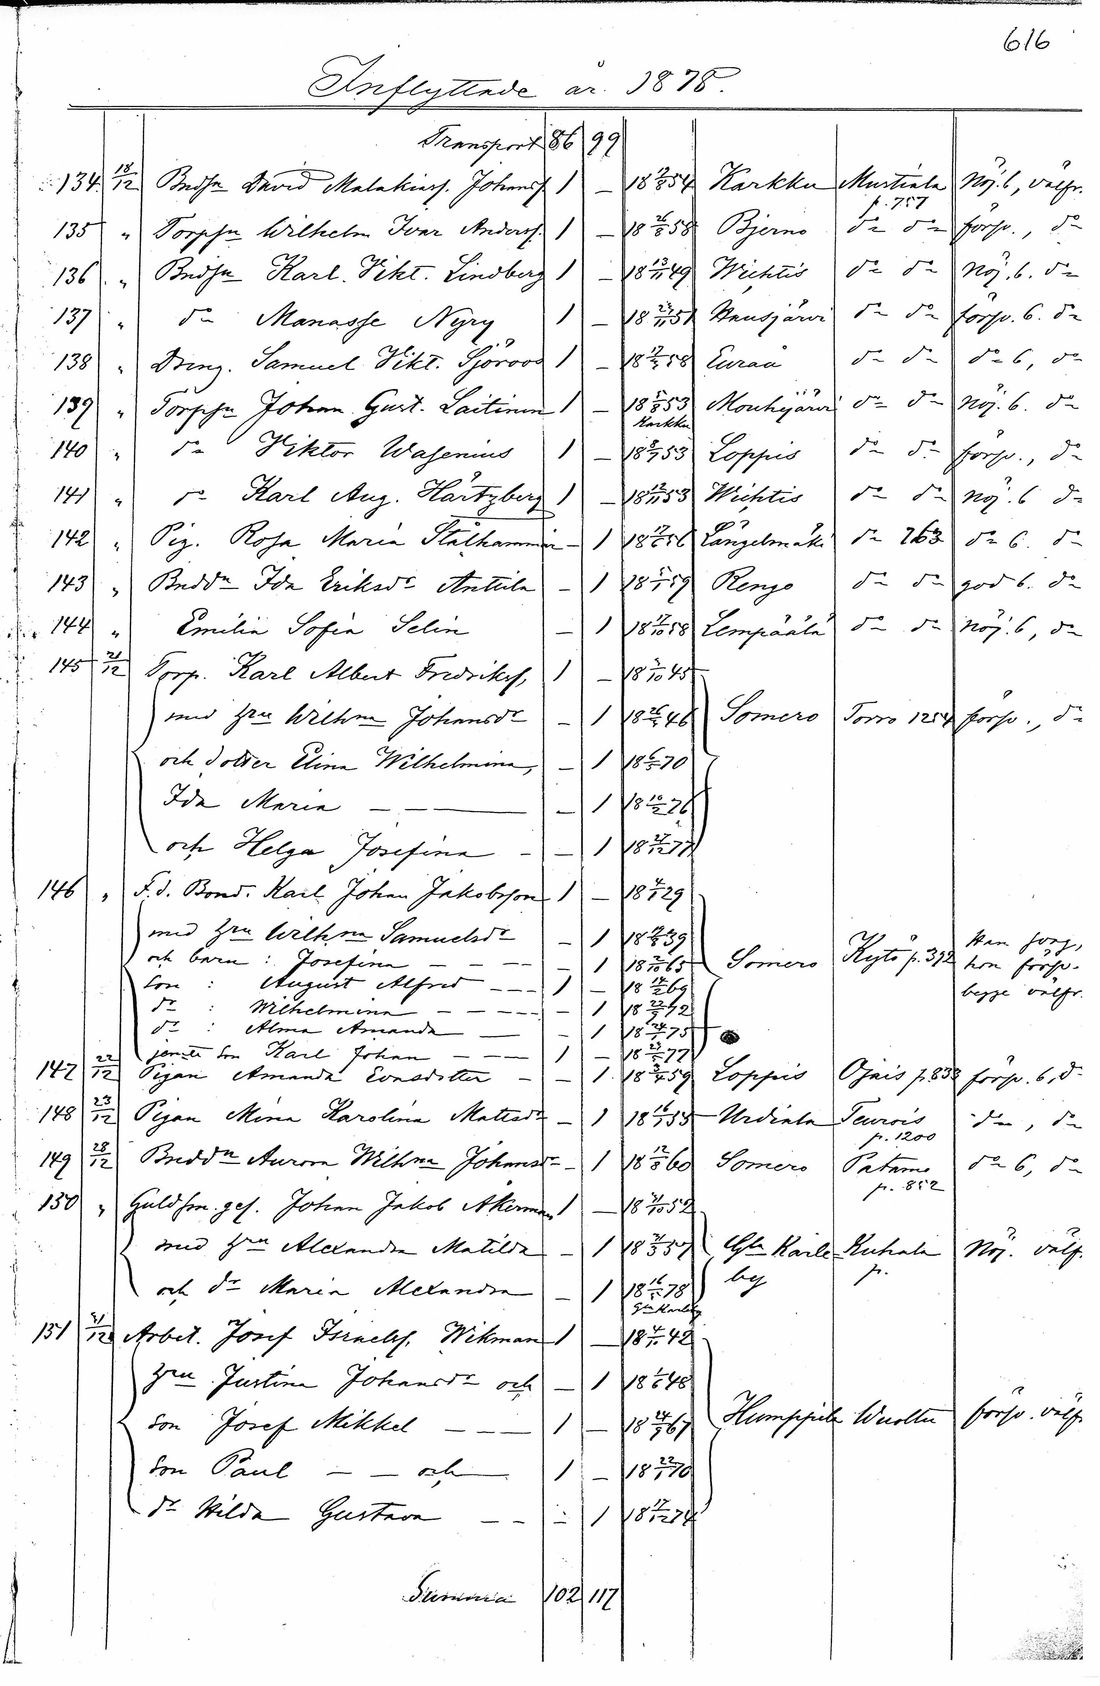 616
Inflyttade år 1878.
Transport 86 99
134 18/12 Bndsn David Malakiass. Johanss. 1 — 18 54 Karkku Mustiala p. 757 Nöj. 6, välfr.
135 " Torpsn Wilhelm Ivar Anderss. 1 — 18 26/8 58 Bjerno do do försv., do
136 " Bndsn Karl Vikt. Lindberg 1 — 18 13/11 49 Wichtis do do Nöj. 6. do
137 " do Manasse Nyry 1 — 18 23/11 51 Hausjärvi do do försv. 6. do
138 " Dreng. Samuel Vikt. Sjöroos 1 — 18 58 Euraå do do do 6, do
139 " Torpsn Johan Gust. Laitinen 1 — 18 5/8 53 Karkku Mouhijärvi do do Nöj. 6. do
140 " do Viktor Wasenius 1 — 18 53 Loppis do do försv., do
141 " do Karl Aug. Härtzberg 1 — 18 12/11 53 Wichtis do do nöj. 6 do
142 " Pig. Rosa Maria Stålhammar — 1 18 56 Längelmäki do 763 do 6. do
143 " Bnddr Ida Eriksdr Anttila — 1 18 59 Rengo do do god 6. do
144 " Emilia Sofia Selin — 1 18 17/10 58 Lempäälä do do Nöj. 6, do
145 21/12 Torp. Karl Albert Fredrikss. 1 — 18 45
med hru Wilhna Johansdr — 1 18 46 Somero Torro 1254 försv., do
och dotter Elina Wilhelmina, — 1 18 70
Ida Maria — — 1 18 10/2 76
och Helga Josefina — — 1 18 27/12 77
146 " F.d. Bond. Karl Johan Jakobsson 1 — 18 29
med hru Wilhna Samuelsdr — 1 18 39 Somero Kytö p. 392 Han svag,
och barn : Josefina — — — 1 18 65 hon försv.
son : August Alfred — — — 1 — 18 14/2 69 begge välfr.
dr : Wilhelmina — — — — 1 18 72
dr : Alma Amanda — — 1 18 75
jemte son Karl Johan — — — 1 — 18 77
147 22/12 Pigan Amanda Evasdotter — — 1 18 59 Loppis Ojais p. 833 försv. 6, do
148 23/12 Pigan Mina Karolina Mattsdr — 1 18 55 Urdiala Teurois p. 1200 do, do
149 28/12 Bnddr Aurora Wilhna Johansdr — 1 18 12/8 60 Somero Patamo p. 852 do 6, do
150 " Guldsm. ges. Johan Jakob Åkerman 1 — 18 21/10 52
med hru Alexandra Matilda — 1 18 57 Gla Karleby Kuhala p. Nöj. välf.
och dr Maria Alexandra — 1 18 78 Gla Karleby
151 31/12 Arbet. Josef Israelss. Wikman 1 — 18 42
hru Justina Johansdr och — 1 18 48
son Josef Mikkel — — — 1 — 18 67 Humppila Wuoltu försv. välf.
son Paul — — och 1 — 18 70
dr Hilda Gustava — — — 1 18 17/12 74
Summa 102 117